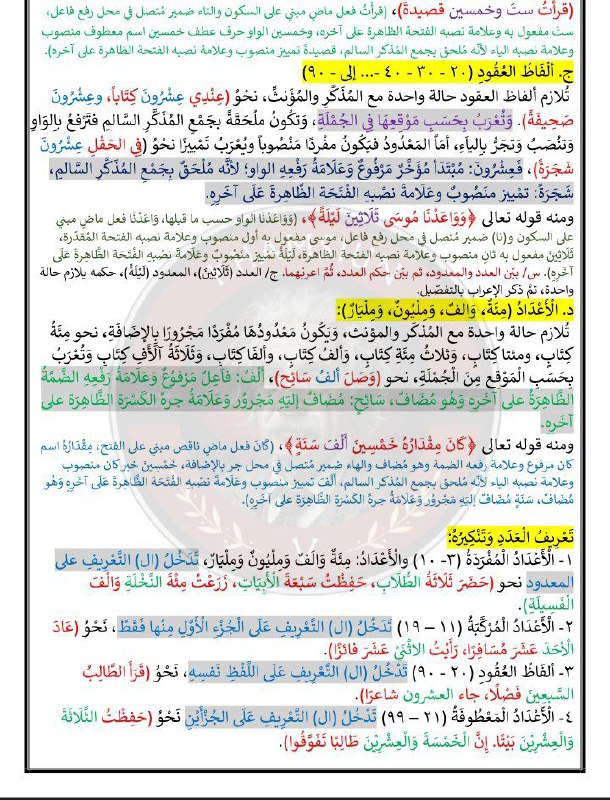 (قرأتُ ستَّ وخمسين قصيدةً)، (قرأتُ فعل ماضٍ مبني على السكون والتاء ضمير مُتصل في محل رفع فاعل،
ستَّ مفعول به وعلامة نصبه الفتحة الظاهرة على آخره، وخمسين الواو حرف عطف خمسين اسم معطوف منصوب
وعلامة نصبه الياء لأنَّه مُلحق بجمع المُذكر السالم، قصيدةً تمييز منصوب وعلامة نصبه الفتحة الظاهرة على آخره).
ج. أَلْفَاظُ العُقُودِ (٢٠ - ٣٠ - ٤٠ -... إلى - ٩٠)
تُلازم ألفاظ العقود حالة واحدة مع المُذَكَّرِ والمُؤنَّثِ، نَحْوُ (عِنْدِي عِشْرُونَ كِتَاباً، وعِشْرُونَ
صَحِيفَةً). وَتُعْرَبُ بِحَسَبِ مَوْقِعِهَا فِي الجُمْلَةِ، وَتكُونُ ملحَقةً بجَمْعِ المُذَكَّرِ السَّالمِ فتَرْفعُ بِالوَاوِ
وَتنْصَبُ وَتجَرُّ بِالياءِ، أمَّا المَعْدُودُ فيَكُونُ مفْردًا مَنْصُوباً ويُعْرَبُ تَمْييزًا نَحْوُ (في الحَفْلِ عِشْرُونَ
شَجَرَةً)، فَعِشْرُونَ: مُبْتَدَأ مُؤخَّرٌ مَرْفُوعٌ وَعَلَامَةُ رَفْعِهِ الواو؛ لأنَّهُ مُلْحَقٌ بِجَمْعِ المُذَكَّرِ السَّالمِ،
شَجَرَةً: تمْييز منصُوبٌ وعلامةُ نَصْبِهِ الفَتْحَة الظَّاهِرةَ عَلَى آخَرِهِ.
ومنه قوله تعالى ﴿وَوَاعَدْنَا مُوسَى ثَلَاثِينَ لَيْلَةً﴾، (وَوَاعَدْنَا الواو حسب ما قبلها، وَاعَدْنَا فعل ماضٍ مبني
على السكون و(نا) ضمير مُتصل في محل رفع فاعل، موسى مفعول به أول منصوب وعلامة نصبه الفتحة المُقدَّرة،
ثَلَاثِينَ مفعول به ثانٍ منصوب وعلامة نصبه الفتحة الظاهرة، لَيْلَةً تمْييزٌ منْصُوبٌ وعَلَامةُ نَصْبِهِ الفَتْحَة الظَّاهِرةَ عَلَى
آخَرِهِ). س/ بيّن العدد والمعدود، ثم بيّن حكم العدد، ثُمَّ اعربهما. ج/ العدد (ثَلَاثِينَ)، المعدود (لَيْلَةً)، حكمه يلازم حالة
واحدة، تمَّ ذكر الإعراب بالتفصيل.
د. الْأَعْدَادُ (مِئَةٌ، وَالفٌ، وَمِلْيُونٌ، وَمِلْيَارٌ):
تُلازم حالة واحدة مع المُذَكَّر والمؤنث، وَيَكُونُ مَعْدُودُهَا مُفْرَدًا مَجْرُورًا بِالإضَافَةِ، نحو مِئَةُ
كِتَابٍ، ومئتا كِتَابٍ، وثلاثُ مِئَةِ كِتَابٍ، وأَلفُ كِتَابٍ، وألفَا كِتَابٍ، وثَلاثَةُ آلَافِ كِتَابٍ وَتُعْرَبُ
بِحَسَبِ الْمَوْقعِ مِنَ الْجُمْلَةِ، نحو (وَصَلَ أَلفُ سَائِحٍ)، أَلْفُ: فَاعِلٌ مَرْفُوعٌ وَعَلَامَةُ رَفْعِهِ الضَّمَّةُ
الظَّاهِرَةُ على آخَرِهِ وَهُو مُضَافٌ، سَائِحٍ: مُضَافٌ إلَيْهِ مَجْرُور وَعَلَامَةُ جرهِ الكَسْرَة الظَّاهِرَة عَلى
آخَرِهِ.
ومنه قوله تعالى ﴿كَانَ مِقْدَارُهُ خَمْسِينَ أَلْفَ سَنَةٍ﴾، (كَانَ فعل ماضٍ ناقص مبني على الفتح، مِقْدَارُهُ اسم
كان مرفوع وعلامة رفعه الضمة وهو مُضاف والهاء ضمير مُتصل في محل جر بالإضافة، خَمْسِينَ خبر كان منصوب
وعلامة نصبه الياء لأنَّه مُلحق بجمع المُذكر السالم، أَلْفَ تمييز منصوب وعَلَامة نَصْبِهِ الفَتْحَة الظَّاهرةَ عَلَى آخَرِهِ وَهُو
مُضَافٌ، سَنَةٍ مُضَافٌ إلَيْهِ مَجْرُور وَعَلَامَةُ جرهِ الكَسْرَة الظَّاهِرَة على آخَرِهِ).
تَعْرِيفُ الْعَدَدِ وَتَنْكِيرُهُ:
١- الْأَعْدَادُ الْمُفْرَدَةُ (٣- ١٠) والْأَعْدَادُ: مِئَةٌ وَالفٌ وَمِلْيُونٌ وَمِلْيَارٌ، تَدْخُلُ (ال) التَّعْرِيفِ على
المعدود نحو (حَضَرَ ثَلَاثَةُ الطُّلَّابِ، حَفِظْتُ سَبْعَةَ الْأَبْيَاتِ، زَرَعْتُ مِئَةَ النَّخْلَةِ وَالْفَ
الْفَسِيلَةِ).
٢- الْأَعْدَادُ الْمُرْكَّبَةُ (١١ – ١٩) تَدْخُلُ (ال) التَّعْرِيفِ عَلَى الْجُزْءِ الْأَوَّلِ مِنْها فَقَطْ، نَحْوُ (عَادَ
الْأَحَدَ عَشَرَ مُسَافِرًا، رَأَيْتُ الاثْنَيْ عَشَرَ فَائزًا).
٣- ألفَاظُ العُقُودِ (٢٠ - ٩٠) تَدْخُلُ (ال) التَّعْرِيفِ عَلَى اللَّفْظِ نَفسِهِ، نَحْوُ (قَرَأَ الطَّالِبُ
السَّبعِينَ فَصْلًا، جاء العشرون شاعرًا).
٤- الْأَعْدَادُ الْمَعْطُوفَةُ (٢١ – ٩٩) تَدْخُلُ (ال) التَّعْرِيفِ عَلَى الْجُزْأَيْنِ نَحْوُ (حَفِظْتُ الثَّلَاثَةَ
وَالْعِشْرِينَ بَيْتًا. إِنَّ الْخَمْسَةَ وَالْعِشْرِيْنَ طَالِبًا تَفَوَّقُوا).